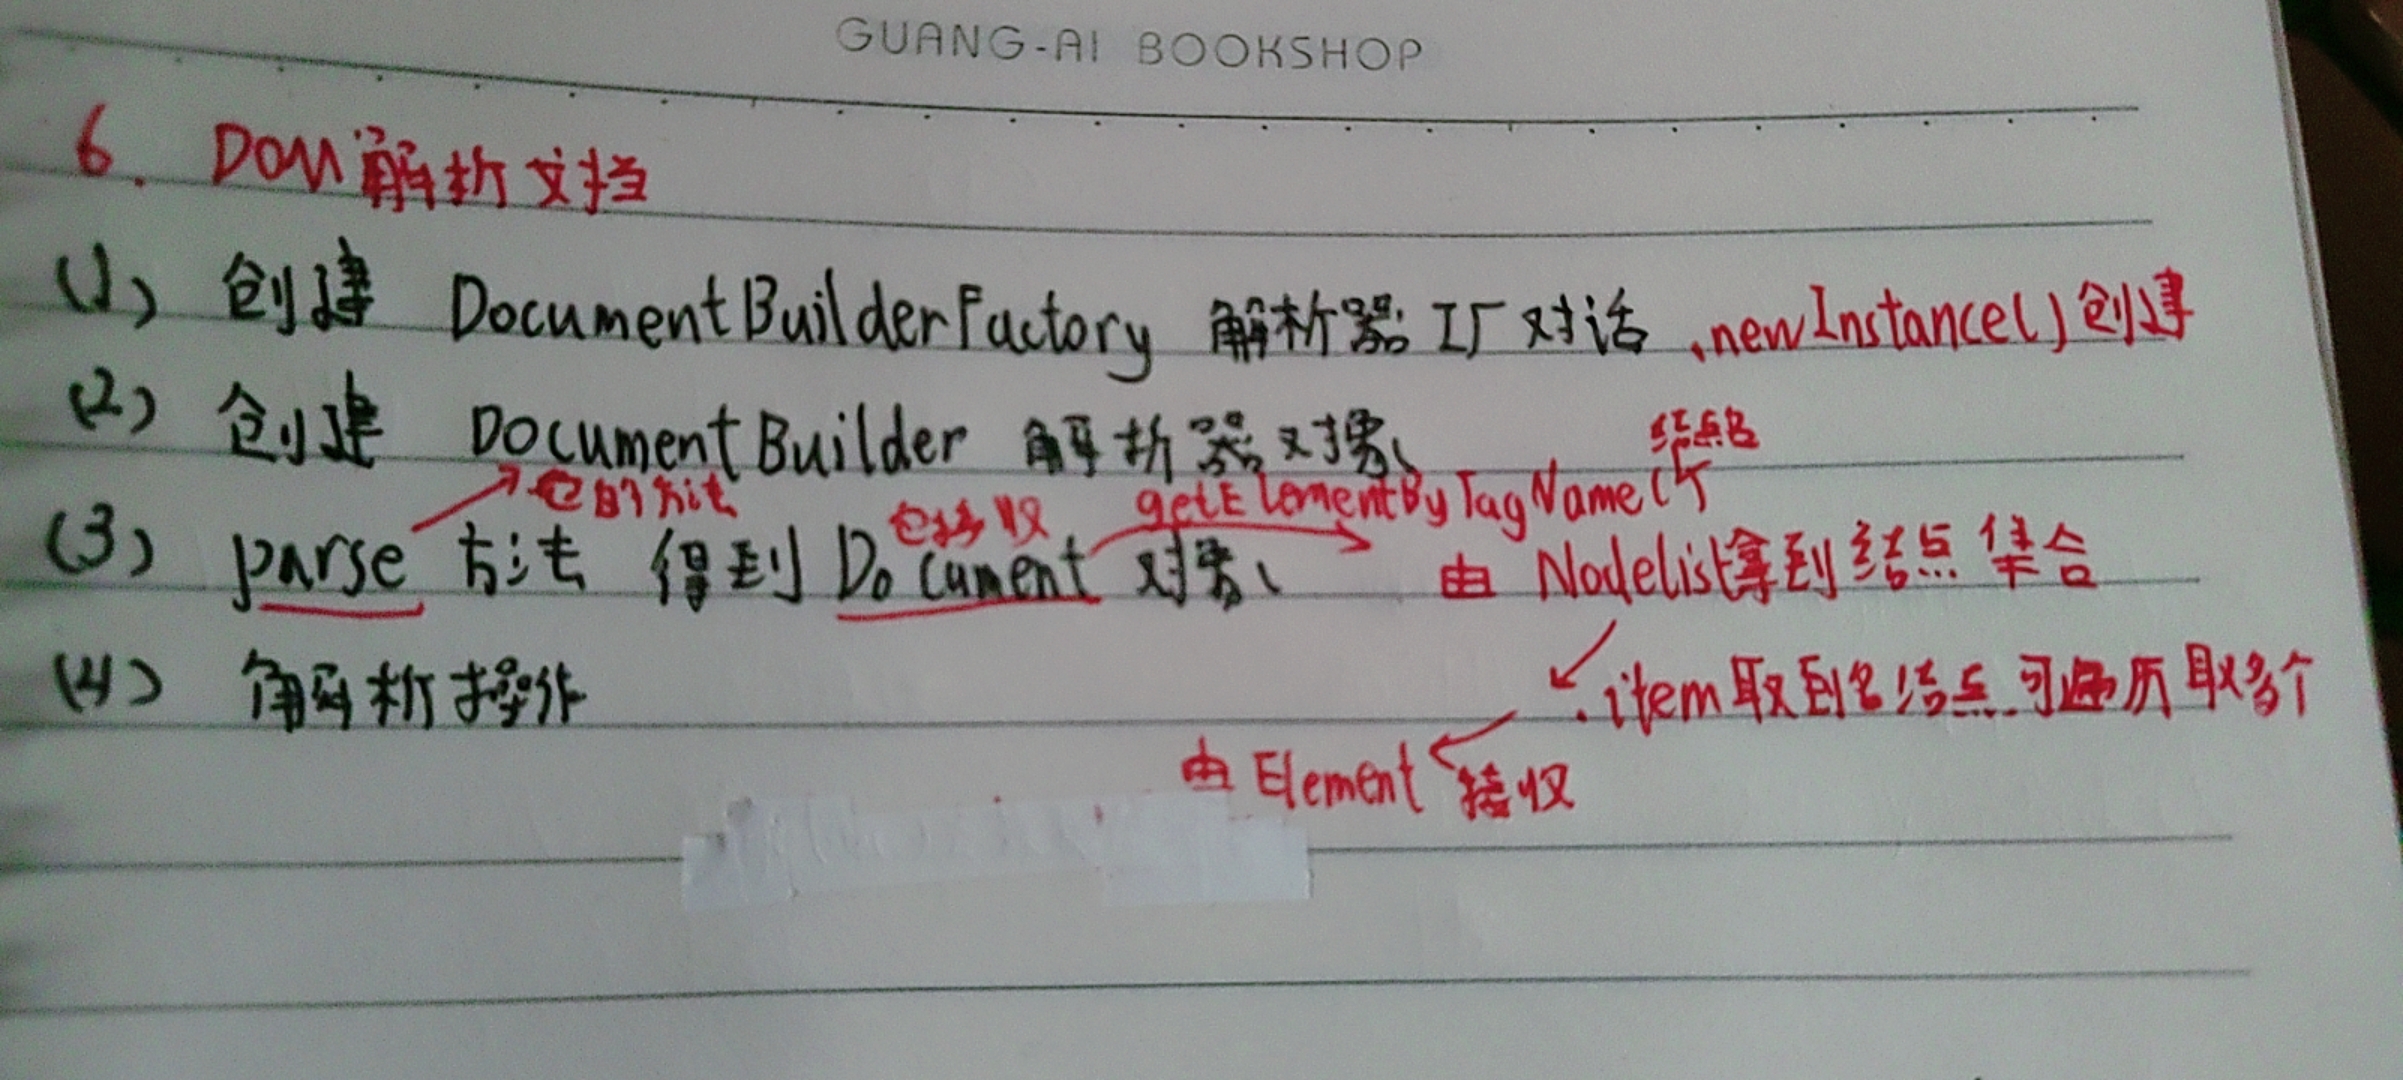 GUANG-AI BOOKSHOP
6. DOM解析文档
(1) 创建 DocumentBuilderFactory 解析器工厂对话 .newInstance()创建
(2) 创建 DocumentBuilder 解析器对象
结点名
它的方法 它接收 getElementByTagName()
(3) parse 方法 得到 Document 对象 由 Nodelist拿到结点集合
(4) 解析操作 .item取到各结点.可遍历取多个
由 Element 接收